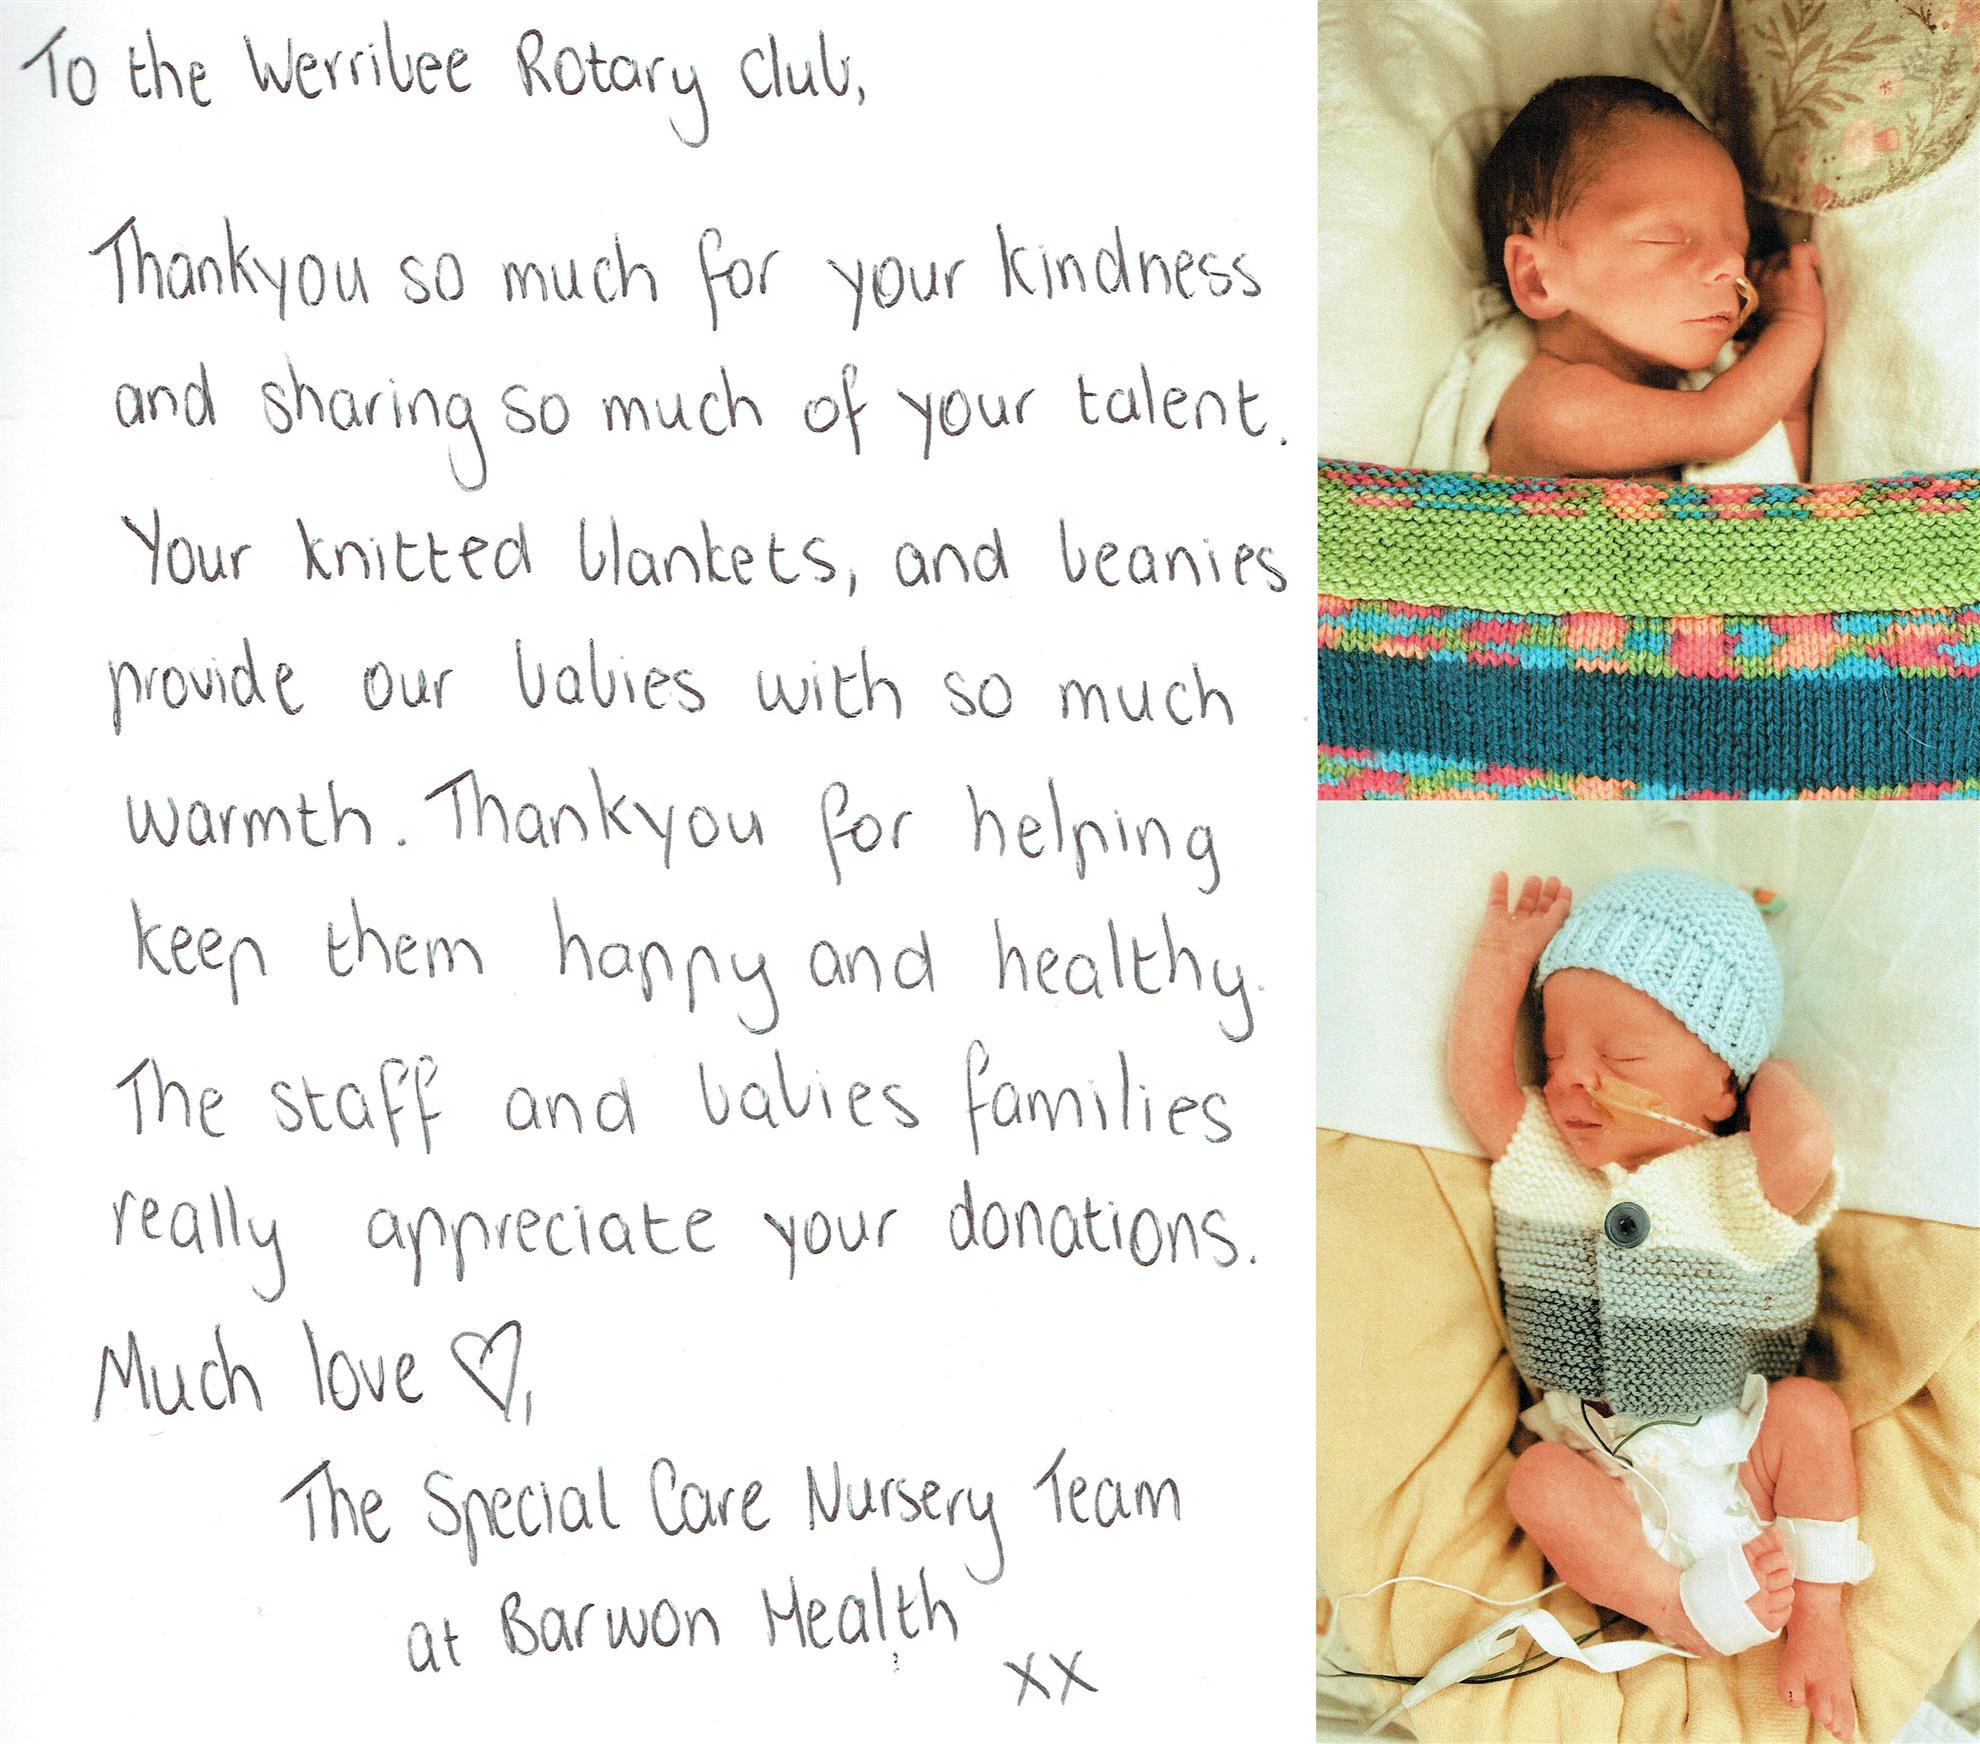 To the Werribee Rotary club,
Thankyou so much for your kindness
and sharing so much of your talent.
Your knitted blankets, and beanies
provide our babies with so much
warmth. Thankyou for helping
keep them happy and healthy.
The staff and babies families
really appreciate your donations.
Much love ♡,
The Special Care Nursery Team
at Barwon Health
xx